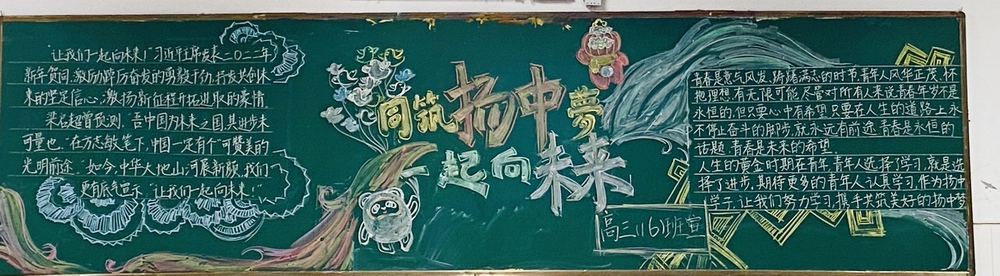 "让我们一起向未来！"习近平主席发表二〇二二年
新年贺词，激励踔厉奋发的勇毅干劲，抒发共创未
来的坚定信心，激扬新征程开拓进取的豪情。
梁启超曾预测，吾中国为未来之国，其进步未
可量也。"在方志敏笔下，中国一定有个可赞美的
光明前途。如今，中华大地山河展新颜，我们
更有底气宣示"让我们一起向未来！"
同筑扬中夢
一起向未来
高三(16)班宣
青春是意气风发、踌躇满志的时节,青年人风华正茂、怀
抱理想,有无限可能,尽管对所有人来说青春年岁不是
永恒的,但只要心中有希望,只要在人生的道路上永
不停止奋斗的脚步,就永远有前途,青春是永恒的
话题,青春是未来的希望.
人生的黄金时期在青年,青年人选择了学习,就是选
择了进步,期待更多的青年人认真学习,作为扬中
学子,让我们努力学习,携手共筑美好的扬中梦